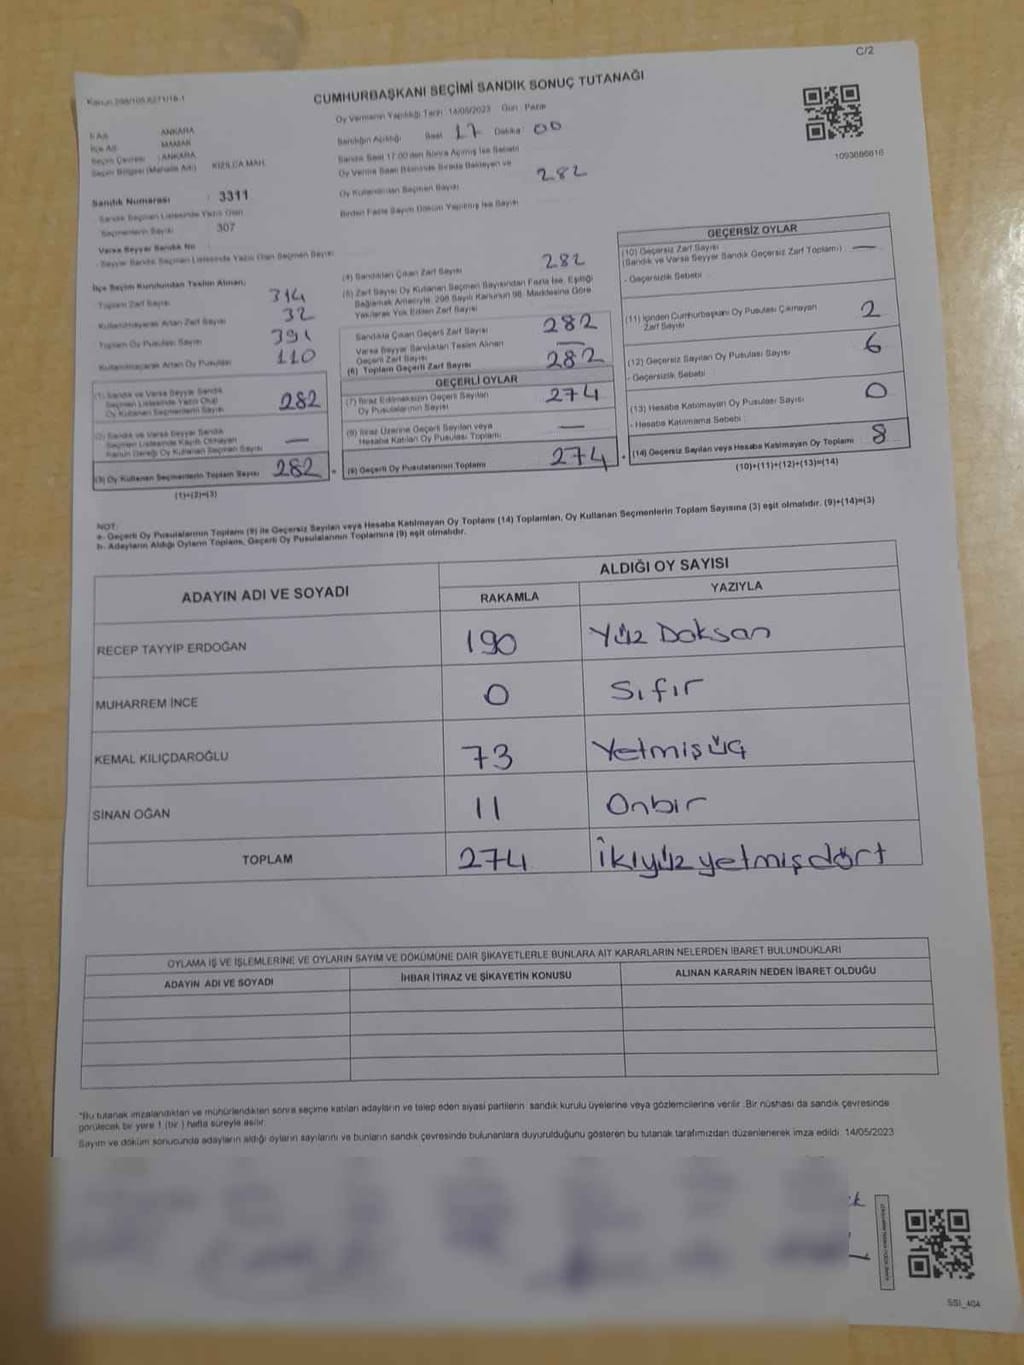 C/2
Kanun 298/105 6271/18-1
CUMHURBAŞKANI SEÇİMİ SANDIK SONUÇ TUTANAĞI
Oy Vermenin Yapıldığı Tarih : 14/05/2023 Gün : Pazar
İl Adı ANKARA
İlçe Adı MAMAK
Seçim Çevresi : ANKARA
Seçim Bölgesi (Mahalle Adı) KIZILCA MAH.
Sandığın Açıldığı Saat 17 Dakika : 00
Sandık Saat 17.00'den Sonra Açılmış İse Sebebi
Oy Verme Saati Bitiminde Sırada Bekleyen ve
Oy Kullandırılan Seçmen Sayısı 282
Birden Fazla Sayım Döküm Yapılmış İse Sayısı
1093686616
Sandık Numarası : 3311
Sandık Seçmen Listesinde Yazılı Olan
Seçmenlerin Sayısı 307
Varsa Seyyar Sandık No
- Seyyar Sandık Seçmen Listesinde Yazılı Olan Seçmen Sayısı
İlçe Seçim Kurulundan Teslim Alınan;
Toplam Zarf Sayısı 314
Kullanılmayarak Artan Zarf Sayısı 32
Toplam Oy Pusulası Sayısı 391
Kullanılmayarak Artan Oy Pusulası 110
(1) Sandık ve Varsa Seyyar Sandık
Seçmen Listesinde Yazılı Olup
Oy Kullanan Seçmenlerin Sayısı 282
(2) Sandık ve Varsa Seyyar Sandık
Seçmen Listesinde Kayıtlı Olmayan
Kanun Gereği Oy Kullanan Seçmen Sayısı —
(3) Oy Kullanan Seçmenlerin Toplam Sayısı 282
(1)+(2)=(3)
(4) Sandıktan Çıkan Zarf Sayısı 282
(5) Zarf Sayısı Oy Kullanan Seçmen Sayısından Fazla İse, Eşitliği
Sağlamak Amacıyla, 298 Sayılı Kanunun 98. Maddesine Göre
Yakılarak Yok Edilen Zarf Sayısı
Sandıkta Çıkan Geçerli Zarf Sayısı 282
Varsa Seyyar Sandıktan Teslim Alınan
Geçerli Zarf Sayısı —
(6) Toplam Geçerli Zarf Sayısı 282
GEÇERLİ OYLAR
(7) İtiraz Edilmeksizin Geçerli Sayılan
Oy Pusulalarının Sayısı 274
(8) İtiraz Üzerine Geçerli Sayılan veya
Hesaba Katılan Oy Pusulası Toplamı —
(9) Geçerli Oy Pusulalarının Toplamı 274
GEÇERSİZ OYLAR
(10) Geçersiz Zarf Sayısı
(Sandık ve Varsa Seyyar Sandık Geçersiz Zarf Toplamı) —
- Geçersizlik Sebebi :
(11) İçinden Cumhurbaşkanı Oy Pusulası Çıkmayan
Zarf Sayısı 2
(12) Geçersiz Sayılan Oy Pusulası Sayısı 6
- Geçersizlik Sebebi
(13) Hesaba Katılmayan Oy Pusulası Sayısı 0
- Hesaba Katılmama Sebebi :
(14) Geçersiz Sayılan veya Hesaba Katılmayan Oy Toplamı 8
(10)+(11)+(12)+(13)=(14)
NOT:
a- Geçerli Oy Pusulalarının Toplamı (9) ile Geçersiz Sayılan veya Hesaba Katılmayan Oy Toplamı (14) Toplamları, Oy Kullanan Seçmenlerin Toplam Sayısına (3) eşit olmalıdır. (9)+(14)=(3)
b- Adayların Aldığı Oyların Toplamı, Geçerli Oy Pusulalarının Toplamına (9) eşit olmalıdır.
ADAYIN ADI VE SOYADI
ALDIĞI OY SAYISI
RAKAMLA YAZIYLA
RECEP TAYYİP ERDOĞAN 190 Yüz Doksan
MUHARREM İNCE 0 Sıfır
KEMAL KILIÇDAROĞLU 73 Yetmişüç
SİNAN OĞAN 11 Onbir
TOPLAM 274 İkiyüzyetmişdört
OYLAMA İŞ VE İŞLEMLERİNE VE OYLARIN SAYIM VE DÖKÜMÜNE DAİR ŞİKAYETLERLE BUNLARA AİT KARARLARIN NELERDEN İBARET BULUNDUKLARI
ADAYIN ADI VE SOYADI İHBAR İTİRAZ VE ŞİKAYETİN KONUSU ALINAN KARARIN NEDEN İBARET OLDUĞU
*Bu tutanak imzalandıktan ve mühürlendikten sonra seçime katılan adayların ve talep eden siyasi partilerin sandık kurulu üyelerine veya gözlemcilerine verilir. Bir nüshası da sandık çevresinde
görülecek bir yere 1 (bir ) hafta süreyle asılır.
Sayım ve döküm sonucunda adayların aldığı oyların sayılarını ve bunların sandık çevresinde bulunanlara duyurulduğunu gösteren bu tutanak tarafımızdan düzenlenerek imza edildi. 14/05/2023
SSI_40A